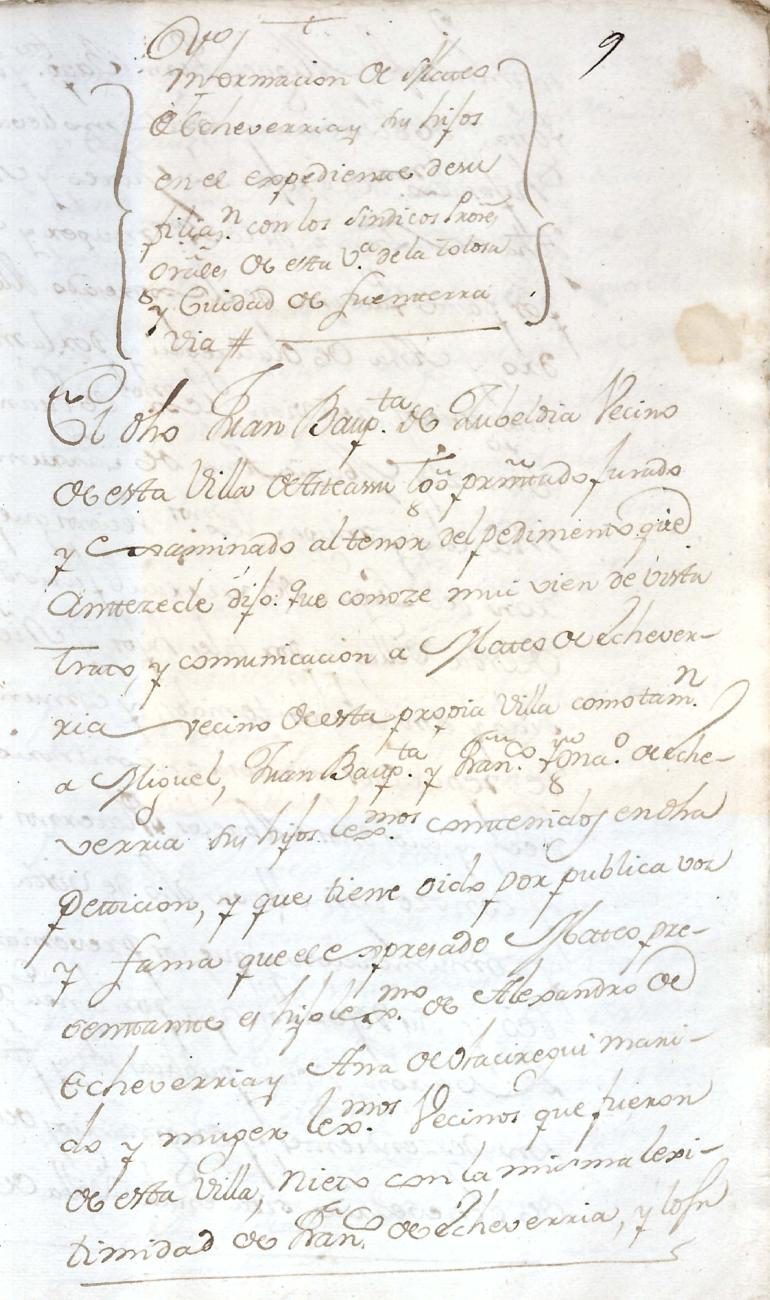 9
Informacion de Mateo
de Echeverria y su hijos
en el expediente de su
filiaz.n con los sindicos Prores
grales de esta V.a de la Tolosa
y Ciudad de Fuenterra
via #
El dho Juan Baup.ta de Zubeldia Vecino
de esta Villa de Atteassu tgo prntado jurado
y examinado al tenor del pedimento que
Anttezede dijo: que conoze mui vien de vista
Trato, y comunicacion a Matteo de Echever-
ria vecino de esta propia Villa como tam.n
a Miguel, Juan Baup.ta y Fran.co Ygna.o de Eche-
verria su hijos lex.mos conttenidos en dha
Pettizion, y que tiene oido por publica voz
y fama que el expresado Matteo pre-
senttante es hijo lex.mo de Alexandro de
Echeverria y Ana de Olaciregui mari-
do y muger lex.mos Vecinos que fueron
de esta Villa, Nieto con la misma lexi-
timidad de Fran.co de Echeverria, y